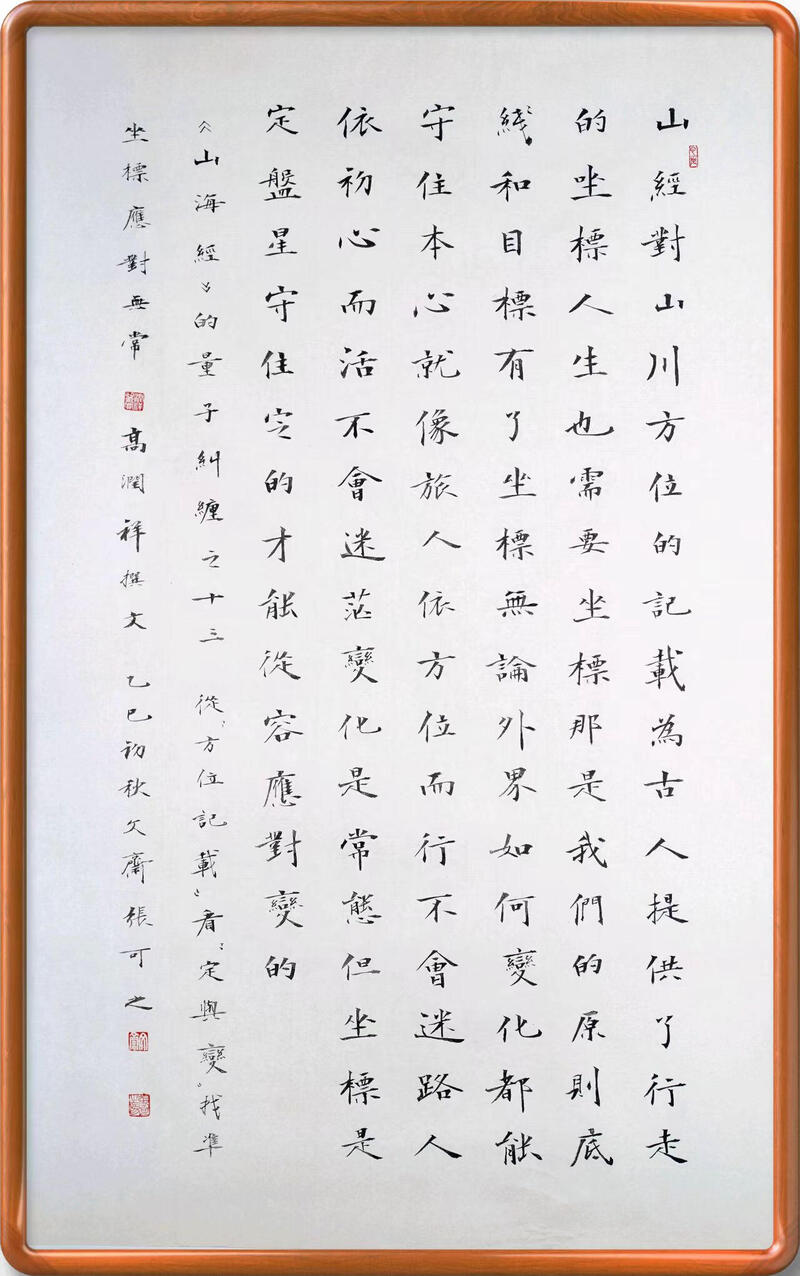 山經對山川方位的記載為古人提供了行走
的坐標人生也需要坐標那是我們的原則底
綫和目標有了坐標無論外界如何變化都能
守住本心就像旅人依方位而行不會迷路人
依初心而活不會迷茫變化是常態但坐標是
定盤星守住定的才能從容應對變的
《山海經》的量子糾纏之十三 從“方位記載”看“定與變”找準
坐標應對無常 髙潤祥撰文 乙巳初秋文齋張可之